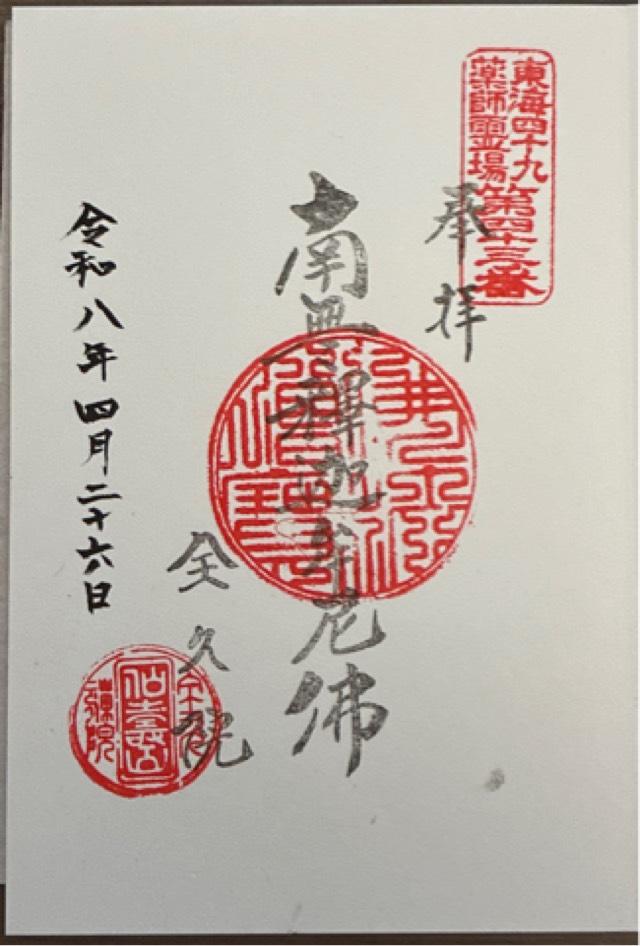 東海四十九
薬師霊場第四十三番
奉拝
南無釋迦牟尼佛
全久院
令和八年四月二十六日